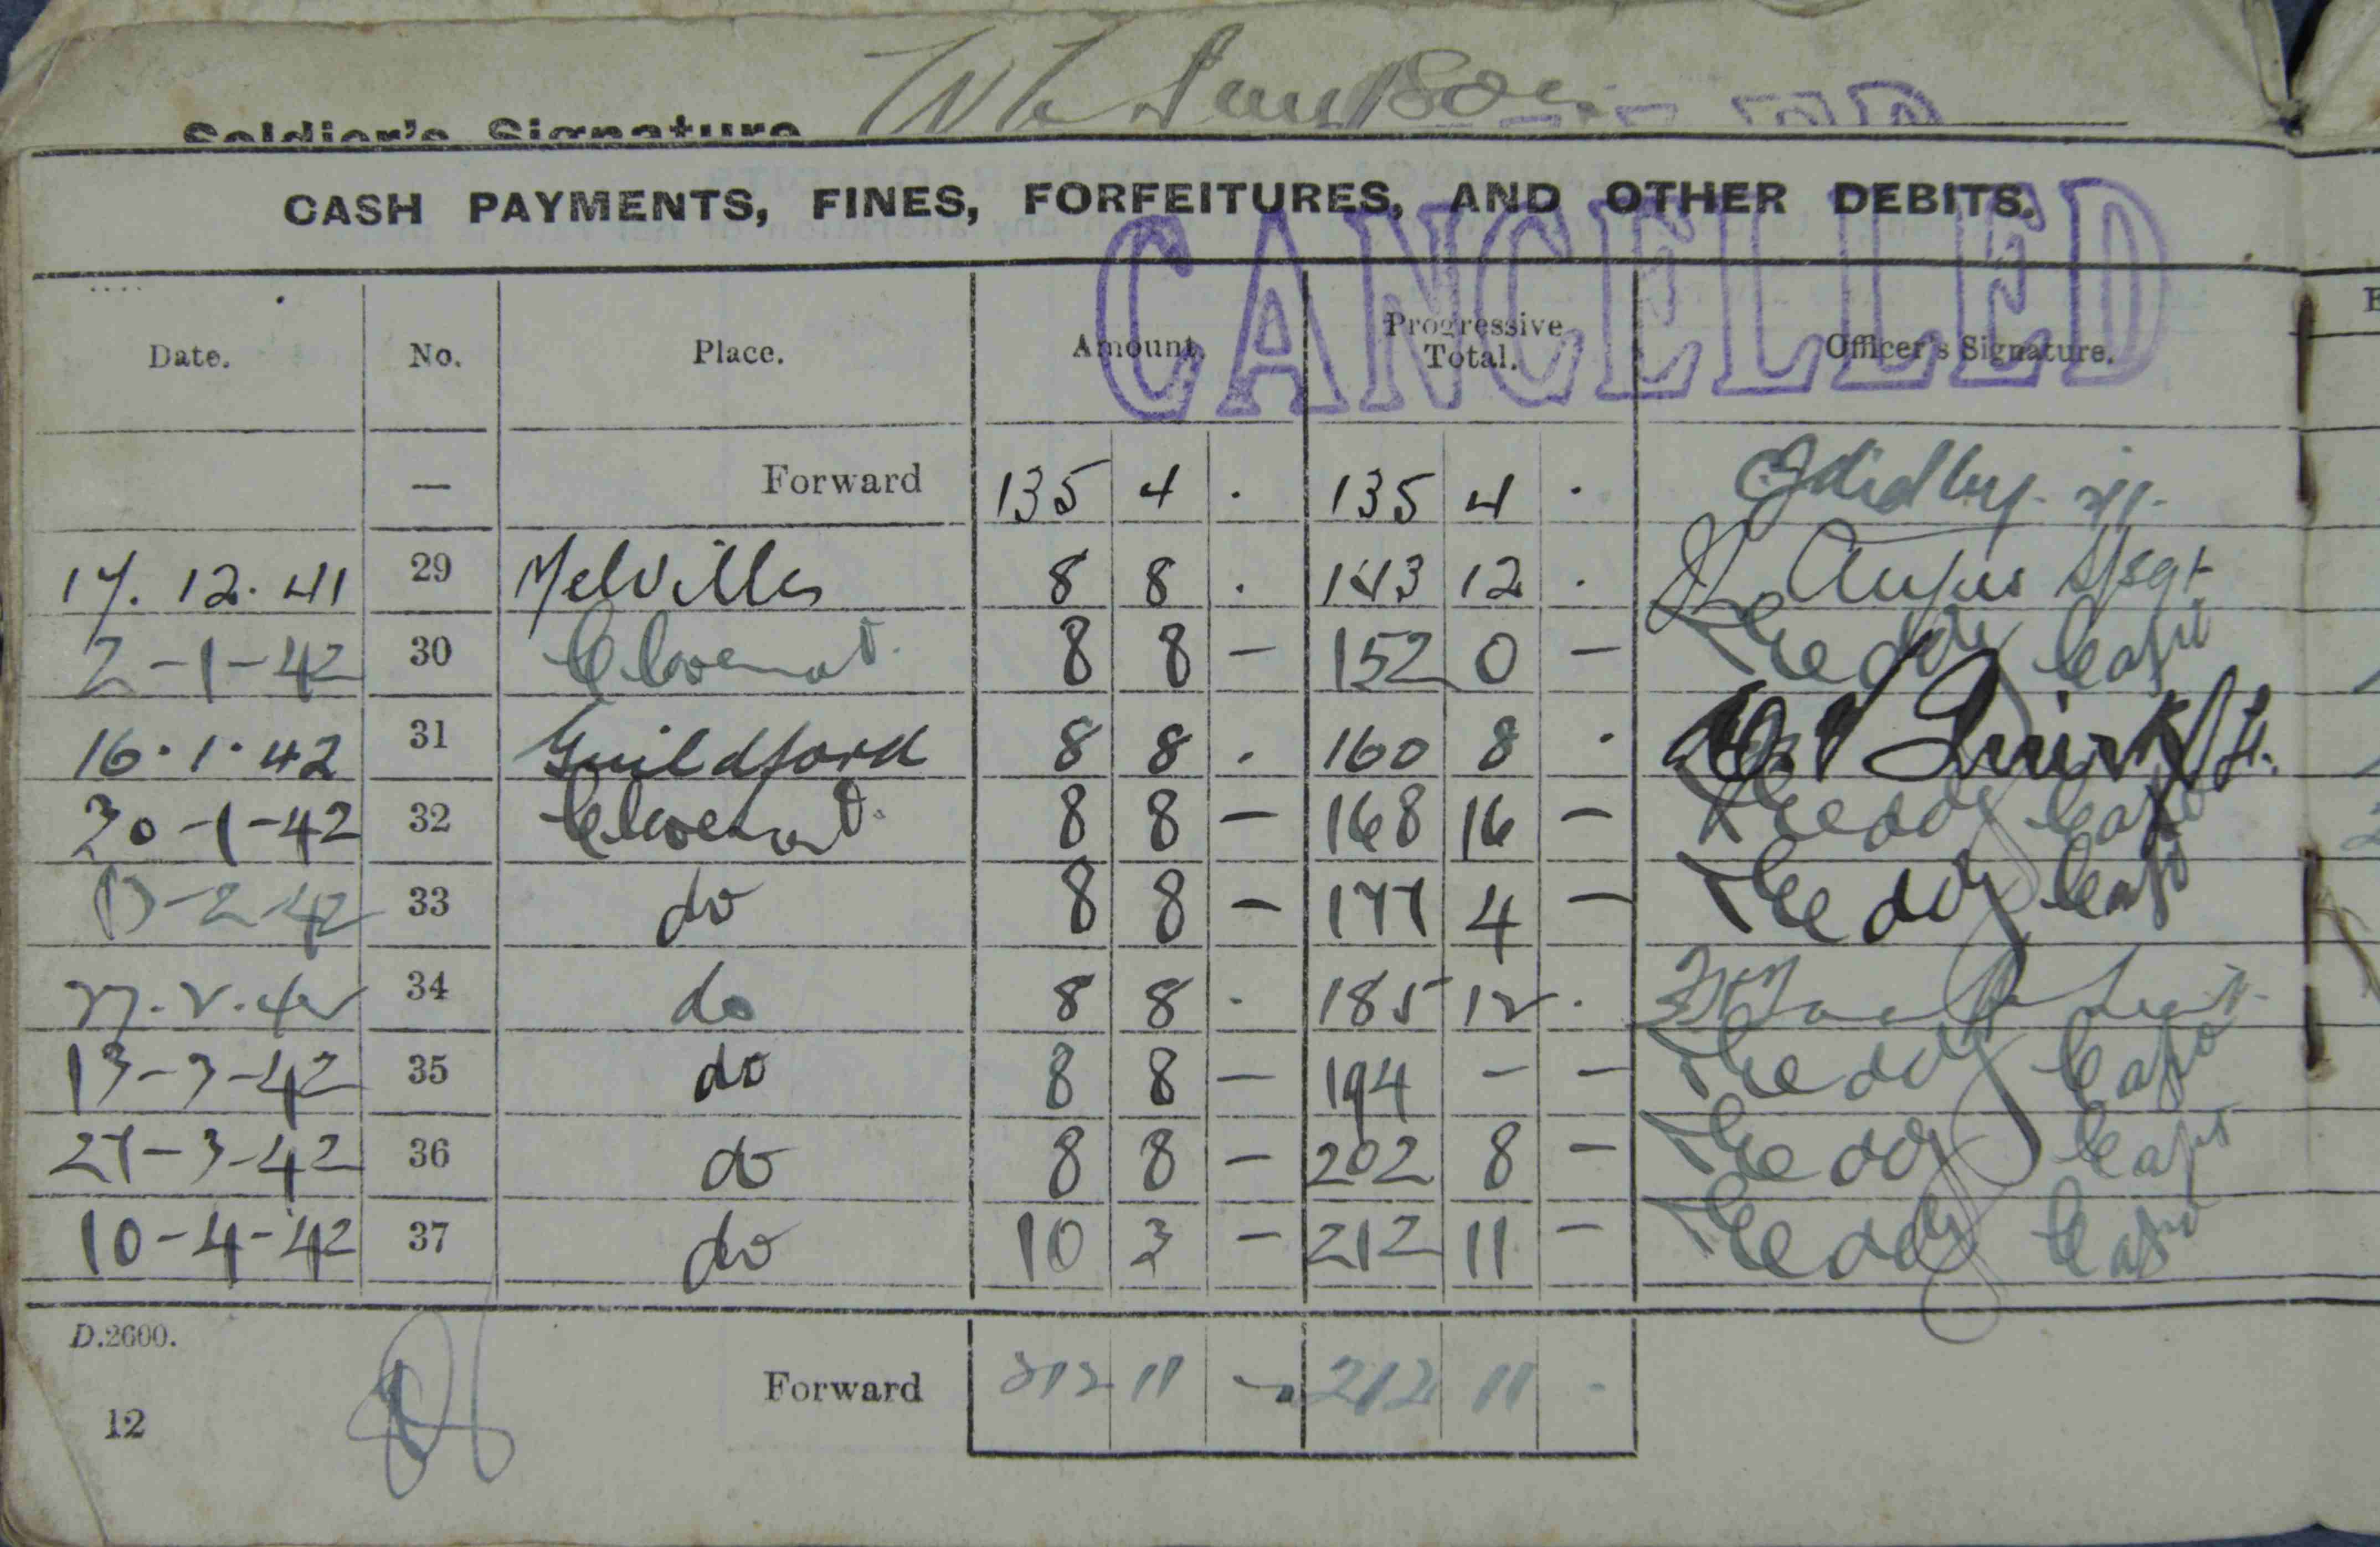 Soldier's Signature
CASH PAYMENTS, FINES, FORFEITURES, AND OTHER DEBITS.
CANCELLED
Date. No. Place. Amount. Progressive Total. Officer's Signature.
— Forward 135 4 . 135 4 .
17. 12. 41 29 Melville 8 8 . 143 12 . Angus S/Sgt
2-1-42 30 8 8 — 152 0 — Capt
16.1.42 31 Guildford 8 8 . 160 8 . Lt.
30-1-42 32 8 8 — 168 16 — Capt
13-2-42 33 do 8 8 — 177 4 — Capt
27.2.42 34 do 8 8 . 185 12 .
13-3-42 35 do 8 8 — 194 — — Capt
27-3-42 36 do 8 8 — 202 8 — Capt
10-4-42 37 do 10 3 — 212 11 — Capt
D.2600.
Forward 212 11 — 212 11 -
12